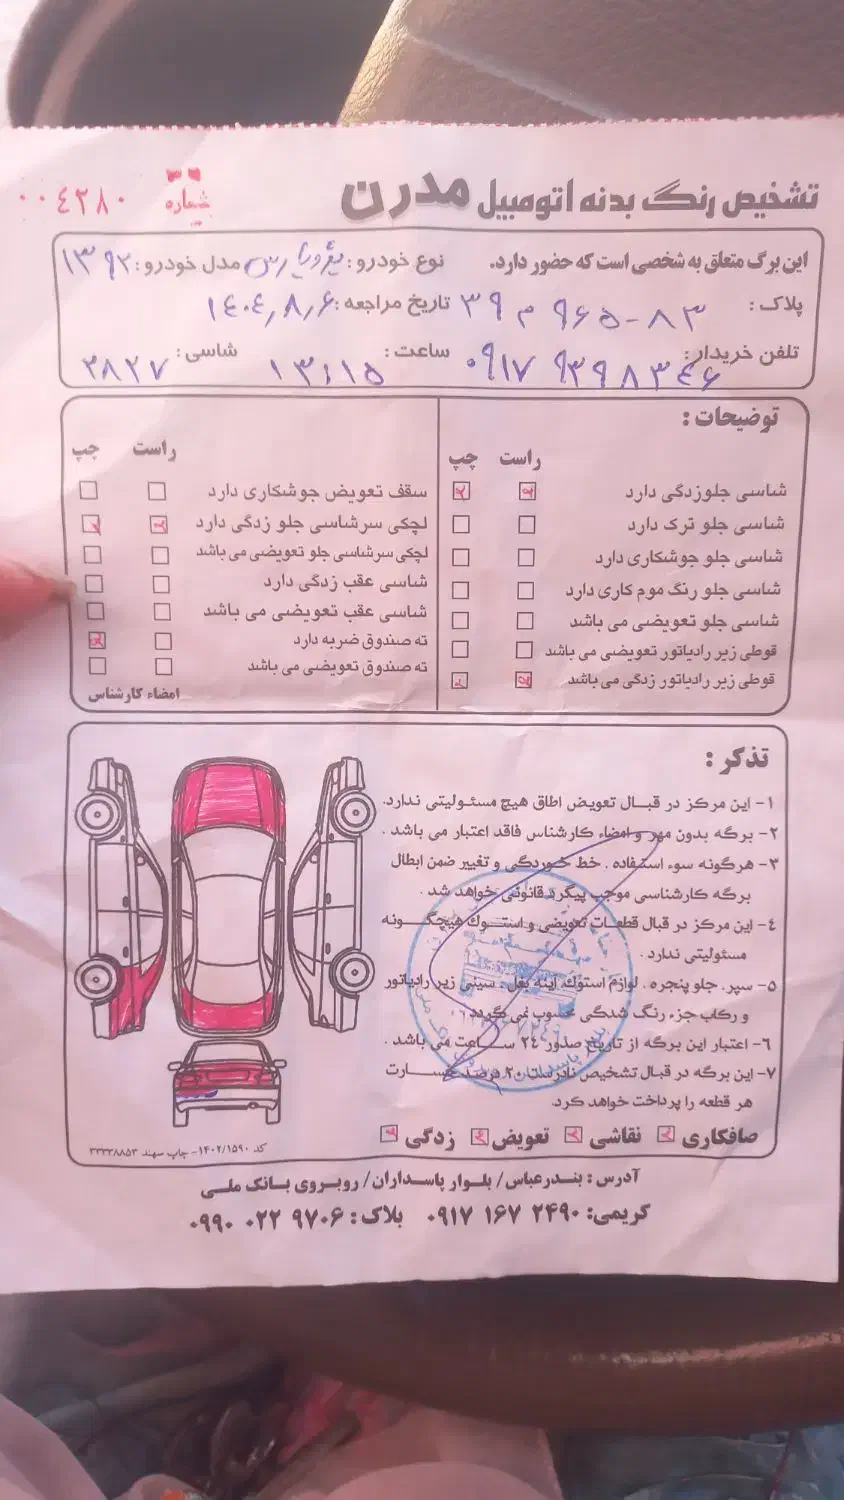 تشخیص رنگ بدنه اتومبیل مدرن
شماره ۰۰٤۲۸۰
این برگ متعلق به شخصی است که حضور دارد. نوع خودرو: پژو پارس مدل خودرو: ۱۳۹۲
پلاک: ۸۳-۹۶۵ م ۳۹ تاریخ مراجعه: ۱٤۰٤٫۸٫۶
تلفن خریدار: ۰۹۱۷ ۹۳۹۸۳٤۶ ساعت: ۱۳:۱۵ شاسی: ۲۸۲۷
توضیحات:
راست چپ
شاسی جلوزدگی دارد
شاسی جلو ترک دارد
شاسی جلو جوشکاری دارد
شاسی جلو رنگ موم کاری دارد
شاسی جلو تعویضی می باشد
قوطی زیر رادیاتور تعویضی می باشد
قوطی زیر رادیاتور زدگی می باشد
راست چپ
سقف تعویض جوشکاری دارد
لچکی سرشاسی جلو زدگی دارد
لچکی سرشاسی جلو تعویضی می باشد
شاسی عقب زدگی دارد
شاسی عقب تعویضی می باشد
ته صندوق ضربه دارد
ته صندوق تعویضی می باشد
امضاء کارشناس
تذکر:
۱- این مرکز در قبال تعویض اطاق هیچ مسئولیتی ندارد.
۲- برگه بدون مهر و امضاء کارشناس فاقد اعتبار می باشد.
۳- هرگونه سوء استفاده . خط خوردگی و تغییر ضمن ابطال
برگه کارشناسی موجب پیگرد قانونی خواهد شد.
٤- این مرکز در قبال قطعات تعویضی و استوک هیچگونه
مسئولیتی ندارد.
۵- سپر. جلو پنجره . لوازم استوک. آینه بغل. سینی زیر رادیاتور
و رکاب جزء رنگ شدگی محسوب نمی گردد.
۶- اعتبار این برگه از تاریخ صدور ۲٤ ساعت می باشد.
۷- این برگه در قبال تشخیص نادرست ۲۰ درصد خسارت
هر قطعه را پرداخت خواهد کرد.
صافکاری نقاشی تعویض زدگی
کد ۱۴۰۲/۱۵۹۰- چاپ سهند ۳۳۳۳۸۸۵۳
آدرس: بندرعباس/ بلوار پاسداران/ روبروی بانک ملی
کریمی: ۰۹۱۷ ۱۶۷ ۲۴۹۰ بلاک: ۰۹۹۰ ۰۲۲ ۹۷۰۶